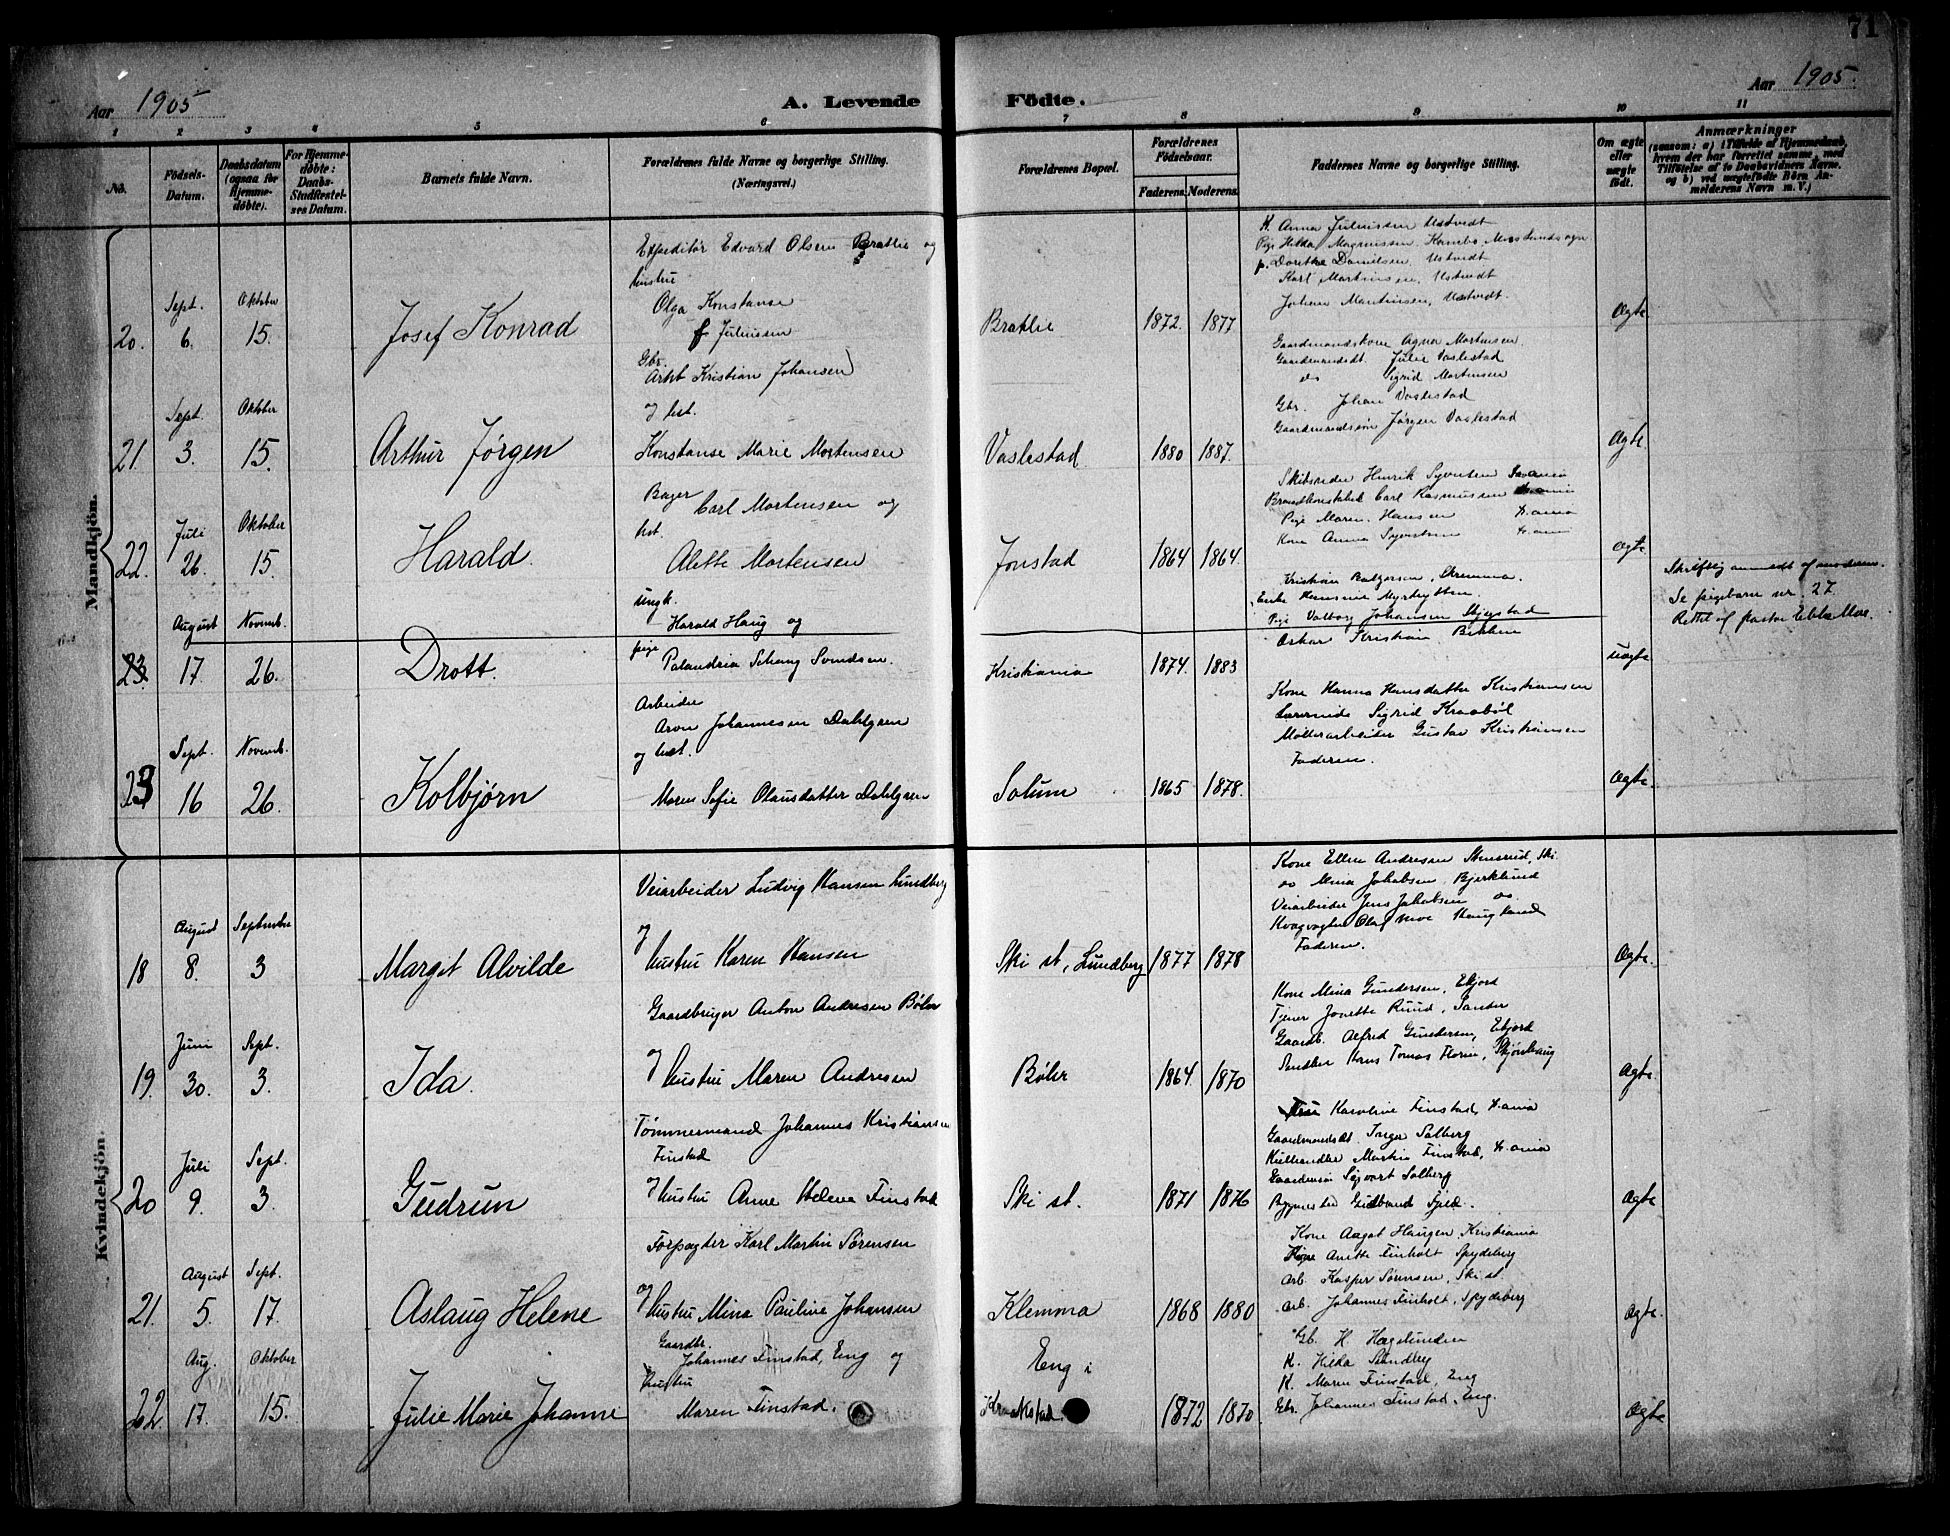 71
Aar 1905
A. Levende Födte.
Aar 1905.
1 2 3 4 5 6 7 8 9 10 11
No.
Födsels-
Datum.
Daabsdatum
(ogsaa for
Hjemme-
döbte).
For Hjemme-
döbte:
Daabs-
Stadfæstel-
ses Datum.
Barnets fulde Navn.
Forældrenes fulde Navne og borgerlige Stilling.
(Næringsvei.)
Forældrenes Bopæl.
Forældrenes
Födselsaar.
Faderens. Moderens.
Faddernes Navne og borgerlige Stilling.
Om ægte
eller
uægte
födt.
Anmærkninger
(saasom: a) i Tilfælde af Hjemmedaab,
hvem der har forrettet samme, med
Tilföielse af to Daabsvidners Navne,
og b) ved uægtefödte Börn An-
melderens Navn m. V.)
Mandkjön.
20. Sept. 6. Oktober 15. Josef Konrad
Expeditør Edvard Olsen Bratlie og
hustru
Olga Konstanse
f Juliussen
Bratlie 1872. 1877
K. Anna Juliussen Ustvedt
Pige Hilda Magnussen, Kambo, Mosslandsogn
p. Dorthe Danielsen, Ustvedt
Karl Martinsen, Ustvedt
Johan Martinsen, Ustvedt.
Ægte
21. Sept. 3. Oktober 15. Arthur Jørgen
Gbr.
Arbt Kristian Johansen
og hst.
Konstanse Marie Mortensen
Vaslestad 1880 1887.
Gaardmandskone Agna Mortensen
Gaardmandsdt. Julie Vaslestad
do Sigrid Mortensen
Gbr. Johan Vaslestad
Gaardmandssøn Jørgen Vaslestad
Ægte
22. Juli 26. Oktober 15. Harald.
Bager Carl Mortensen og
hst.
Alette Mortensen
Jonstad 1864 1864
Skibsreder Henrik Syvertsen
Brandkonstabel Carl Rasmussen
Pige Maren Hansen Kr.ania
Kone Anna Syvertsen Kr.ania
Ægte
23. August 17. Novemb. 26. Drott.
Ungk.
Harald Haug og
pige
Palandria Schang Svendsen.
Kristiania 1874. 1883
Kristian Bolgersen, Dremma.
Enke Rasmine Myrhytten
Pige Valborg Johansen Skjegstad
Oskar Kristian Bikken
uægte
Skriftlig anmeldt af moderen.
Se pigebarn nr. 27
Rettet af pastor Ebbe Moe.
23 Sept. 16 Novemb. 26. Kolbjørn
Arbeider
Aron Johannesen Dahlgren
og hust.
Maren Sofie Olausdatter Dahlgren
Solum 1865 1878.
Kone Hanna Hansdatter Kristiansen
Lærerinde Sigrid Kraabøl
Møllerarbeider Gustav Kristiansen
Faderen.
Ægte
Kvindekjön.
18 August 8. September 3 Margit Alvilde
Veiarbeider Ludvig Hansen Lundberg
og
hustru Karen Hansen
Ski st, Lundberg 1877 1878
Kone Ellen Andresen Stensrud, Ski.
do Mina Jakobsen, Bjerklund
Veiarbeider Jens Jakobsen do
Kvægvogter Olaf Moe Haugland
Faderen.
Ægte.
19. Juni 30. Sept. 3. Ida.
Gaardbruger Anton Andresen Bøler
og
hustru Maren Andresen
Bøler 1864. 1870
Kone Mina Gundersen, Ekjord
Tjener Jonette Ruud, Sander
Gaardb. Alfred Gundersen, Ekjord
Snedker Hans Tomas Florin, Skjønhaug
Ægte.
20 Juli 9. Sept. 3. Gudrun
Tømmermand Johannes Kristiansen
Finstad
og hustru Anne Helene Finstad
Ski st. 1871 1876
Fru Karoline Finstad, Kr.ania
Gaardmandsdt. Inger Solberg
Kulhandler Martin Finstad, Kr.ania
Gaardmsøn Sigvart Solberg
Bygmester Gudbrand Fjeld.
Ægte
21. August 5. Sept. 17. Aslaug Helene
Forpagter Karl Martin Sørensen
og
hustru Mina Pauline Johansen
Klemma 1868 1880
Kone Aagot Haugen Kristiania
Kone Anette Finholt Spydeberg
Arb. Kasper Sørensen, Ski st.
Arb. Johannes Finholt, Spydeberg
Ægte.
22. Aug. 17. Oktober 15. Julie Marie Johanne
Gaardbr.
Johannes Finstad, Eng og
hustru
Maren Finstad.
Eng i
Kraakstad. 1872 1870
Gb. H. Hægelunden
K. Hilda Sandberg
K. Maren Finstad, Eng
Gbr. Johannes Finstad, Eng.
Ægte